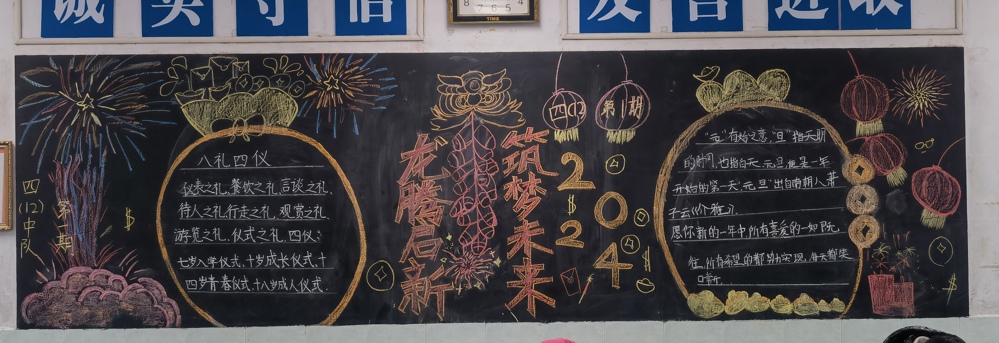 诚 实 守 信
友 善 进 取
TIME
四(12)中队
第一期
八礼四仪
仪表之礼、餐饮之礼、言谈之礼、
待人之礼、行走之礼、观赏之礼、
游览之礼、仪式之礼、四仪：
七岁入学仪式、十岁成长仪式、十
四岁青春仪式、十八岁成人仪式.
龙腾启新
筑梦未来
四(12)
第1期
2024
"元"有始之意，"旦"指天明
的时间，也指白天.元旦便是一年
开始的第一天"元旦"出自南朝人萧
子云《介雅》.
愿你新的一年中所有喜爱的一如既
往，所有希望的都努力实现，每天都笑
口常开.